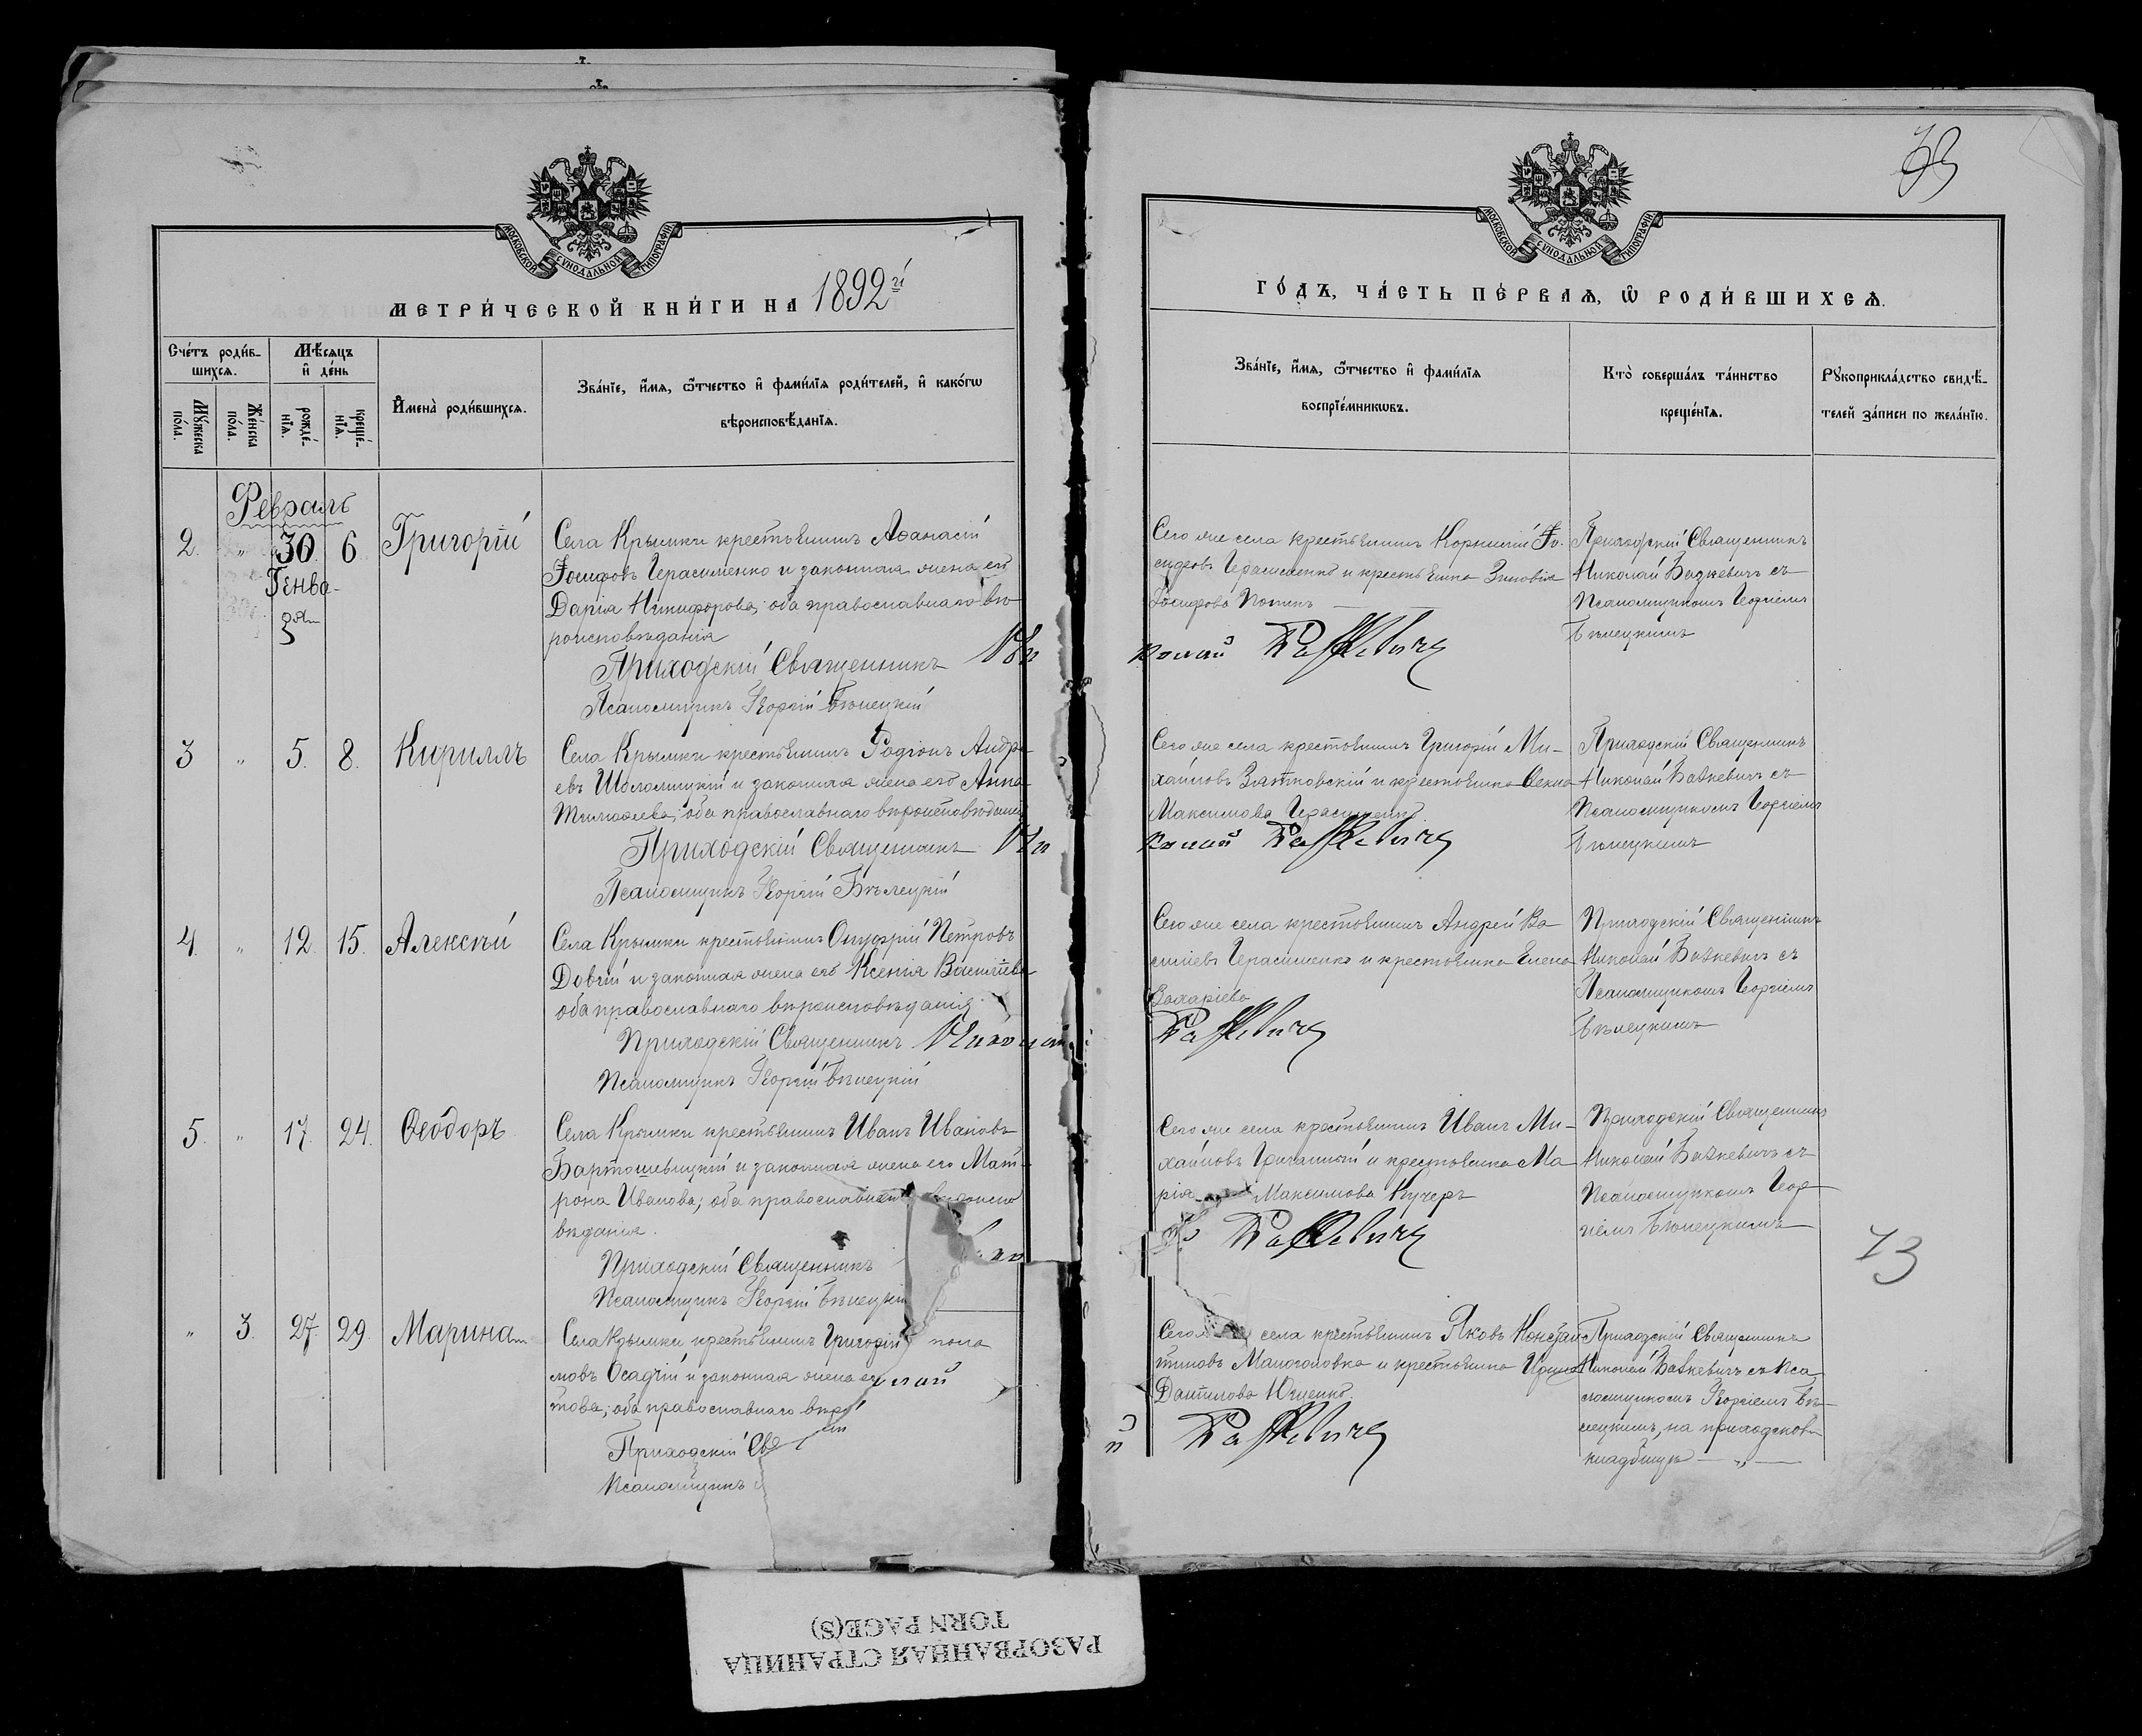 МОСКОВСКОЙ СѴНОДАЛЬНОЙ ТИПОГРАФІИ
МЕТРИ́ЧЕСКОЙ КНИ́ГИ НА 1892й
Сче́тъ роди́в-
шихсѧ.
Мѣ́сѧцъ
и҆ де́нь
Мꙋ́жеска
по́ла.
Же́нска
по́ла.
рожде́-
нїѧ.
креще́-
нїѧ.
И҆мена̀ роди́вшихсѧ.
Зва́нїе, и҆́мѧ, ѻ҆́тчество и҆ фами́лїѧ роди́телей, и҆ како́гѡ
вѣроисповѣ́данїѧ.
Февраль
2. " 30 6 Григорій
Генва-
ря
Села Крымки крестьянинъ Аѳанасій
Іосифовъ Герасименко и законная жена его
Дарія Никифорова; оба православнаго вѣ-
роисповѣданія
Приходскій Священникъ Ни
Псаломщикъ Георгій Бѣлецкій
3 " 5. 8. Кириллъ
Села Крымки крестьянинъ Родіонъ Андре-
евъ и законная жена его Анна
Тимоѳеева; оба православнаго вѣроисповѣданія
Приходскій Священникъ Ни
Псаломщикъ Георгій Бѣлецкій
4. " 12. 15. Алексѣй
Села Крымки крестьянинъ Онуфрій Петровъ
Довгій и законная жена его Ксенія Василіева
оба православнаго вѣроисповѣданія.
Приходскій Священникъ Николай
Псаломщикъ Георгій Бѣлецкій
5. " 17. 24. Ѳеодоръ
Села Крымки крестьянинъ Иванъ Ивановъ
Бартошевицкій и законная жена его Мат-
рона Иванова; оба православнаго вѣроиспо
вѣданія.
Приходскій Священникъ
Псаломщикъ Георгій Бѣлецкій
" 3. 27. 29. Марина
Села Крымки крестьянинъ Григорій
Осадчій и законная жена его
това; оба православнаго вѣро
Приходскій Свя
Псаломщикъ
МОСКОВСКОЙ СѴНОДАЛЬНОЙ ТИПОГРАФІИ
ГО́ДЪ, ЧА́СТЬ ПЕ́РВАѦ, Ѽ РОДИ́ВШИХСѦ.
Зва́нїе, и҆́мѧ, ѻ҆́тчество и҆ фами́лїѧ
воспрїе́мникѡвъ.
Кто̀ соверша́лъ та́инство
креще́нїѧ.
Рꙋкоприкла́дство свидѣ́-
телей за́писи по жела́нїю.
Сего же села крестьянинъ Корнилій Іо-
сифовъ Герасименко и крестьянка Зиновія
Іосифова
колай Вашкевичъ
Приходскій Священникъ
Николай Вашкевичъ съ
Псаломщикомъ Георгіемъ
Бѣлецкимъ
Сего же села крестьянинъ Григорій Ми-
хайловъ Зятковскій и крестьянка Ѳекла
Максимова Герасименко.
колай Вашкевичъ
Приходскій Священникъ
Николай Вашкевичъ съ
Псаломщикомъ Георгіемъ
Бѣлецкимъ
Сего же села крестьянинъ Андрей Ва
силіевъ Герасименко и крестьянка Елена
Захаріева
Вашкевичъ
Приходскій Священникъ
Николай Вашкевичъ съ
Псаломщикомъ Георгіемъ
Бѣлецкимъ
Сего же села крестьянинъ Иванъ Ми-
хайловъ и крестьянка Ма
рія Максимова Кучеръ
Вашкевичъ
Приходскій Священникъ
Николай Вашкевичъ съ
Псаломщикомъ Геор
гіемъ Бѣлецкимъ
13
Сего же села крестьянинъ Яковъ Констан
тиновъ Малоголовка и крестьянка Ирина
Данилова Юценко.
Вашкевичъ
Приходскій Священникъ
Николай Вашкевичъ съ Пса
ломщикомъ Георгіемъ Бѣ-
лецкимъ, на приходскомъ
кладбищѣ — „ —
РАЗОРВАННАЯ СТРАНИЦА
TORN PAGE(S)